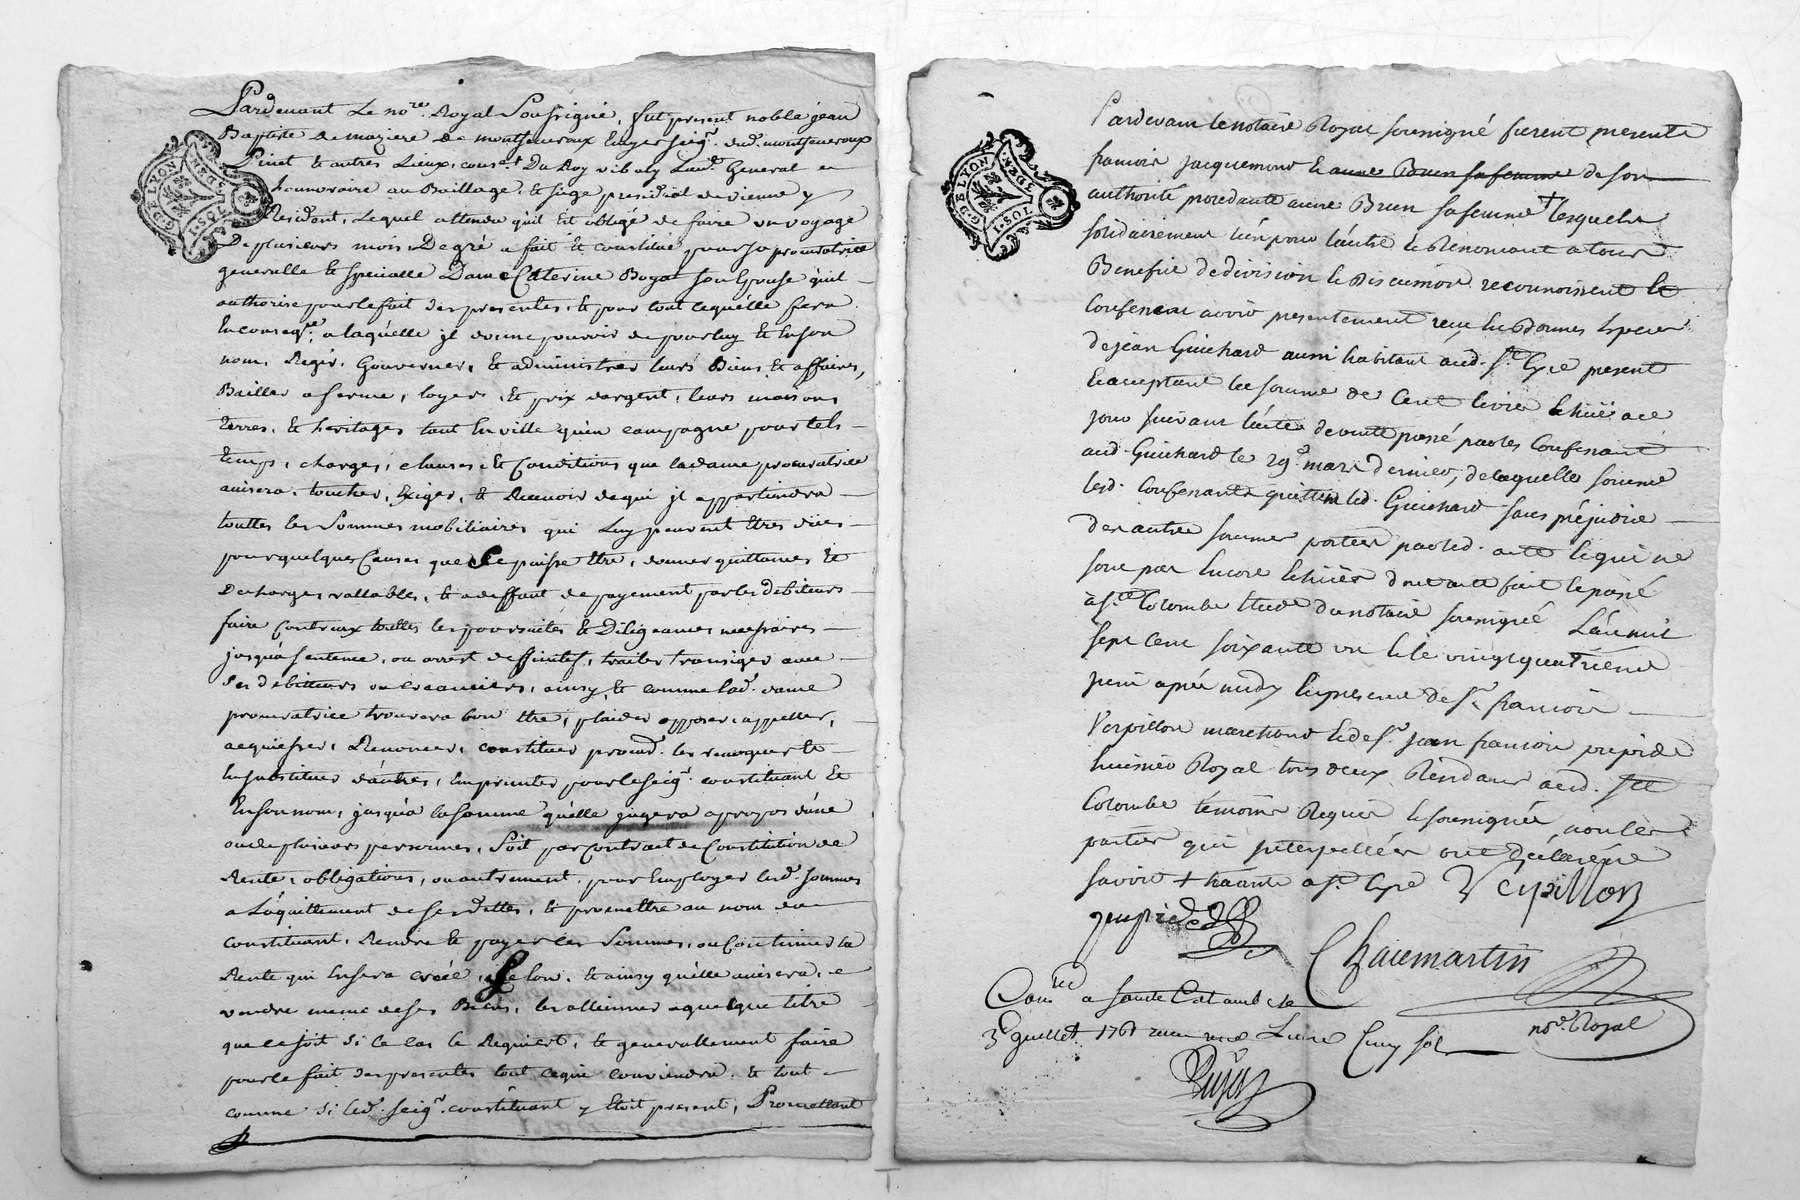 Pardevant Le no.re Royal Soussigné, fut present noble jean
Baptiste de maziere de montseveroux Ecuyer seig.r dud. montseveroux
Pinet & autres Lieux, cons.er Du Roy vibaly Lieu.t General
honnoraire au Baillage, & siege presidial de vienne y
Residant, Lequel attendu qu'il Est obligé de faire un voyage
De plusieurs mois, De gré a fait & constitué pour sa procuratrice
generalle & specialle Dame Caterine Boyat son Epouse qu'il
authorise pour le fait des presentes, & pour tout ce quelle fera
En conseq.ce, a laquelle jl donne pouvoir de pour luy & En son
nom, Regir, Gouverner, & administrer leurs Biens & affaires,
Bailler a ferme, loyer, & prix d'argent, leurs maisons
terres, & heritages tant En ville qu'en campagne pour tels
temps, charges, clauses, & Conditions que la dame procuratrice
avisera, toucher, Exiger, & Recevoir de qui jl appartiendra
touttes les Sommes mobiliaires qui Luy peuvent Etres düës
pour quelques Causes que Ce puisse Etre, donner quittances &
Decharges vallables, & a deffaut de payement par les Debiteurs
faire Contreux touttes les poursuites & Diligeances necessaires
jusqu'a sentence, ou arrest deffinitif, traiter transiger avec
Les debitteurs ou creanciers, ainsy, & comme lad. dame
procuratrice trouvera bon Etre, plaider opposer, appeller,
acquiesser, Renoncer, constituer procu.r les revoquer &
En substituer d'autres, Emprunter pour le seig.r constituant &
En son nom, jusqu'a la somme quelle jugera a propos d'une
ou de plusieurs personnes, Soit par Contrait de Constitution de
Rente, obligations, ou autrement, pour Employer lesd. sommes
a L'aquittement de ses dettes, & promettre au nom du
constituant, Rendre & payer les Sommes, ou Continuer la
Rente qui En sera créée, selon, & ainsy quelle avisera,
vendre meme de ses Biens, les allienner a quelque titre
que ce soit si le cas le Requiert, & generallement faire
pour le fait des presentes tout ce qui conviendra & tout
comme si led. seig.r constituant y Etoit present, Promettant
Pardevant le notaire Royal soussigné furent presents
francois jacquemond & anne Brun sa femme de son
authorité procedante anne Brun sa femme † lesquels
solidairement l'un pour l'autre & Renoncant a tour
Benefice de division & discution reconnoissent &
Confessent avoir presentement reçu En Bonnes Especes
de jean Guichard aussi habitant aud. S.t Cyr present
& acceptant la somme de Cent livres Echüe a ce
jour suivant l'acte de vente passé par les Confessant
aud. Guichard le 29.e mars dernier, de laquelle somme
lesd. Confessants quittent led. Guichard sans préjudice
des autres sommes portées par led. acte & qui ne
sont pas Encore Echües dont acte fait & passé
à s.te Colombe Etude du notaire soussigné L'an mil
sept cent soixante un & le vingt quatrieme
juin après midy En presence de s.r francois
Verpillon marchand & de s.r jean francois
huissier Royal tous deux Residants aud. Ste
Colombe témoins Requis & soussignés, non les
parties qui jnterpellées ont Déclaré ne
savoir † habitants a s.t Cyr Verpillon
Chavemartin
no.re Royal
Con.lé a Sainte Colombe le
3 juillet 1761 recu une Livre Cinq sols
G. DE LYON
I. SOL